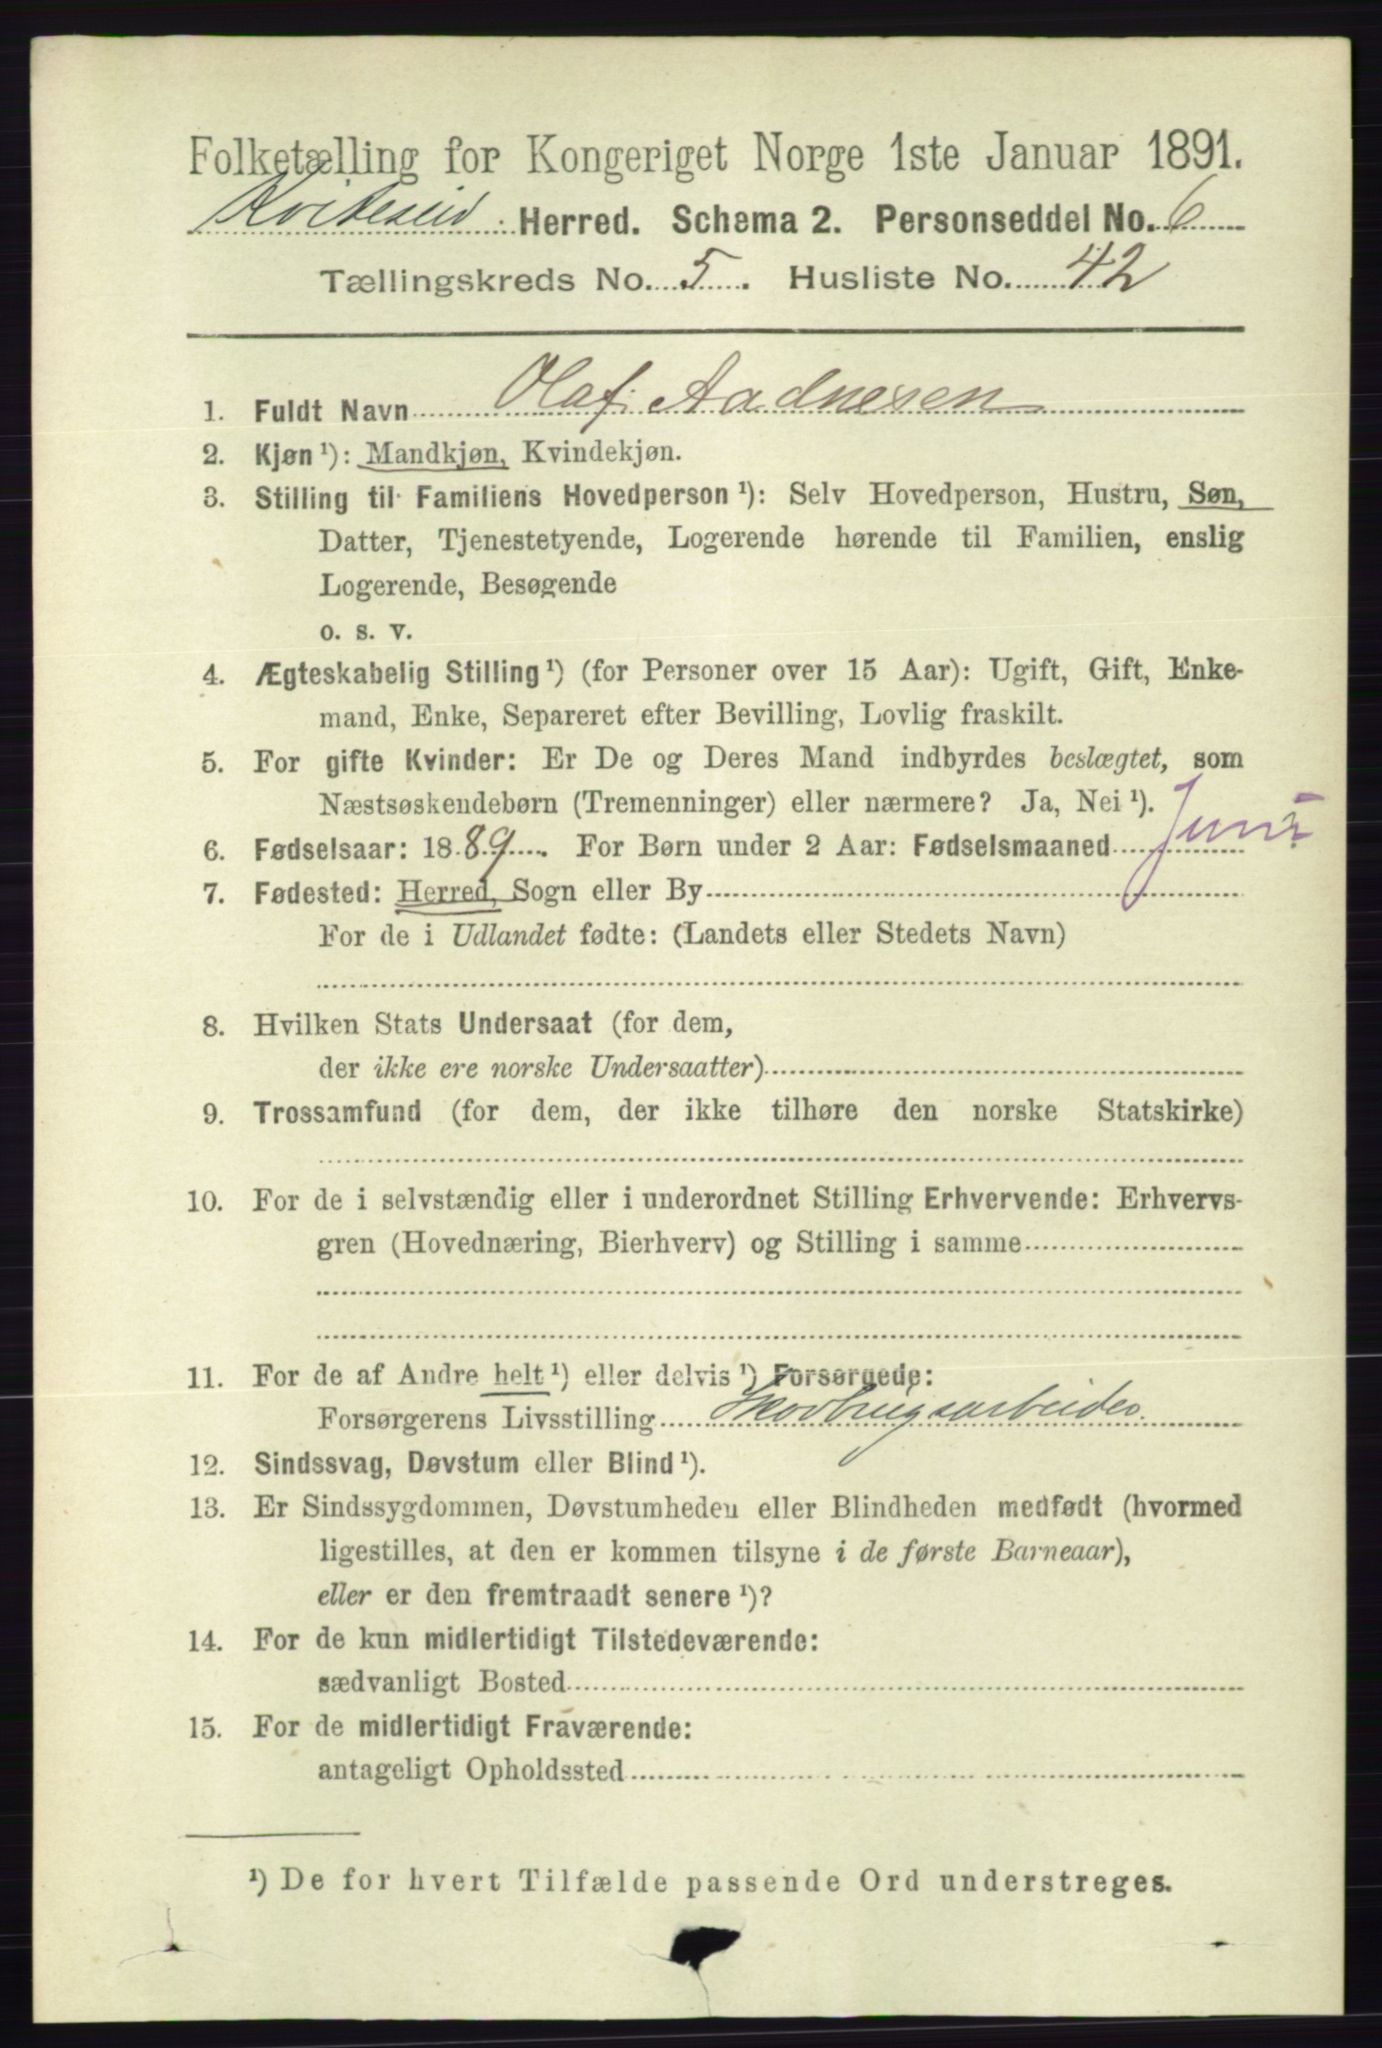 Folketælling for Kongeriget Norge 1ste Januar 1891.
Kviteseid Herred. Schema 2. Personseddel No. 6
Tællingskreds No. 5. Husliste No. 42
1. Fuldt Navn Olaf Aadnesen
2. Kjøn ¹): Mandkjøn, Kvindekjøn.
3. Stilling til Familiens Hovedperson ¹): Selv Hovedperson, Hustru, Søn,
Datter, Tjenestetyende, Logerende hørende til Familien, enslig
Logerende, Besøgende
o. s. v.
4. Ægteskabelig Stilling ¹) (for Personer over 15 Aar): Ugift, Gift, Enke-
mand, Enke, Separeret efter Bevilling, Lovlig fraskilt.
5. For gifte Kvinder: Er De og Deres Mand indbyrdes beslægtet, som
Næstsøskendebørn (Tremenninger) eller nærmere? Ja, Nei ¹).
6. Fødselsaar: 1889. For Børn under 2 Aar: Fødselsmaaned Juni
7. Fødested: Herred, Sogn eller By
For de i Udlandet fødte: (Landets eller Stedets Navn)
8. Hvilken Stats Undersaat (for dem,
der ikke ere norske Undersaatter)
9. Trossamfund (for dem, der ikke tilhøre den norske Statskirke)
10. For de i selvstændig eller i underordnet Stilling Erhvervende: Erhvervs-
gren (Hovednæring, Bierhverv) og Stilling i samme
11. For de af Andre helt ¹) eller delvis ¹) Forsørgede:
Forsørgerens Livsstilling Skovbrugsarbeider
12. Sindssvag, Døvstum eller Blind ¹).
13. Er Sindssygdommen, Døvstumheden eller Blindheden medfødt (hvormed
ligestilles, at den er kommen tilsyne i de første Barneaar),
eller er den fremtraadt senere ¹)?
14. For de kun midlertidigt Tilstedeværende:
sædvanligt Bosted
15. For de midlertidigt Fraværende:
antageligt Opholdssted
¹) De for hvert Tilfælde passende Ord understreges.